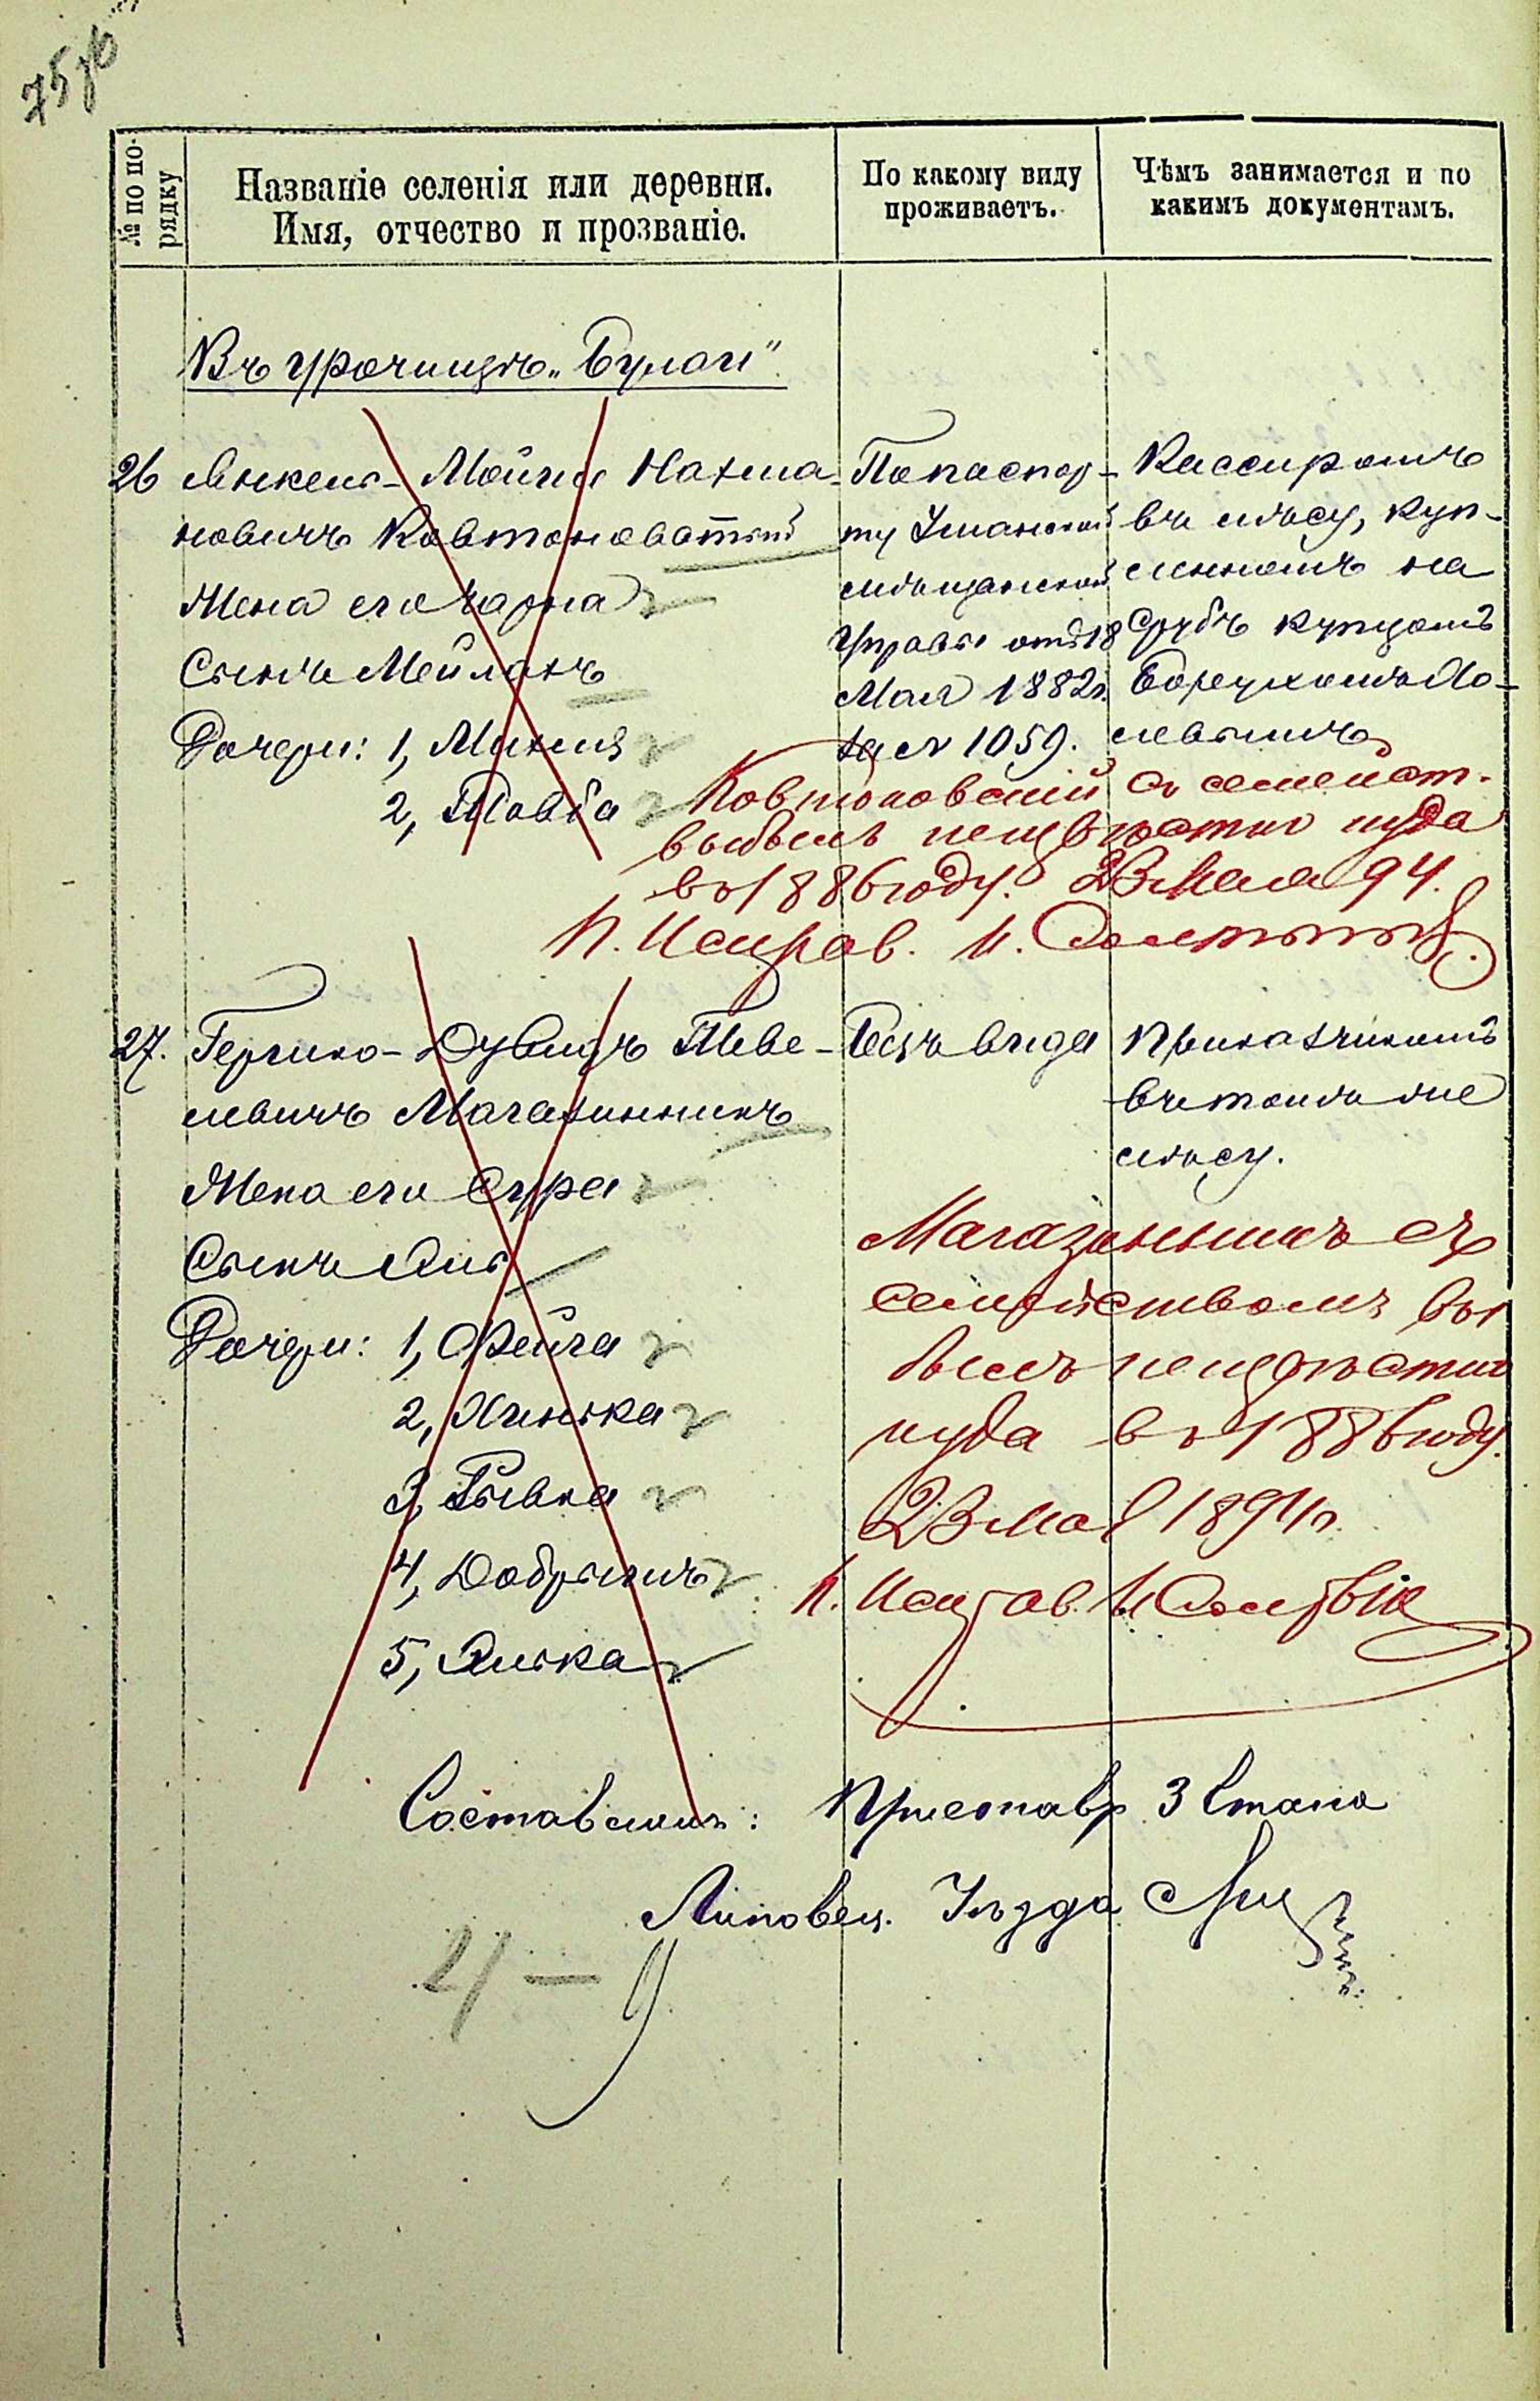 75 об
№ по по-
рядку
Названіе селенія или деревни.
Имя, отчество и прозваніе.
По какому виду
проживаетъ.
Чѣмъ занимается и по
какимъ документамъ.
Въ урочищѣ „Булаи”.
26 Янкель-Мойше Нахма-
новичъ Ковтоноватый
Жена его Чарна
Сынъ Мейлахъ
Дочери: 1, Михля
2, Товба
По паспор-
ту Уманской
мѣщанской
Управы отъ 18
Мая 1882 г.
за № 1059.
Кассиромъ
въ лѣсу, куп-
ленномъ на
срубъ купцомъ
Борухомъ Ло-
Ковтоновский съ семейст.
выбылъ неизвѣстно куда
въ 1886 году. 23 Мая 94.
И. Исправ.
27. Гершко-Дувидъ Теве-
левичъ Магазинникъ
Жена его Сура
Сынъ
Дочери: 1, Фейга
2, Хинька
3, Рывка
4, Добрышъ
5, Элька
Безъ вида
Приказчикомъ
въ томъ же
лѣсу.
Магазинникъ съ
семействомъ вы
былъ неизвѣстно
куда въ 1886 году.
23 мая 1894 г.
И. Исправ.
Составилъ: Приставъ 3 Стана
Липовец. Уѣзда